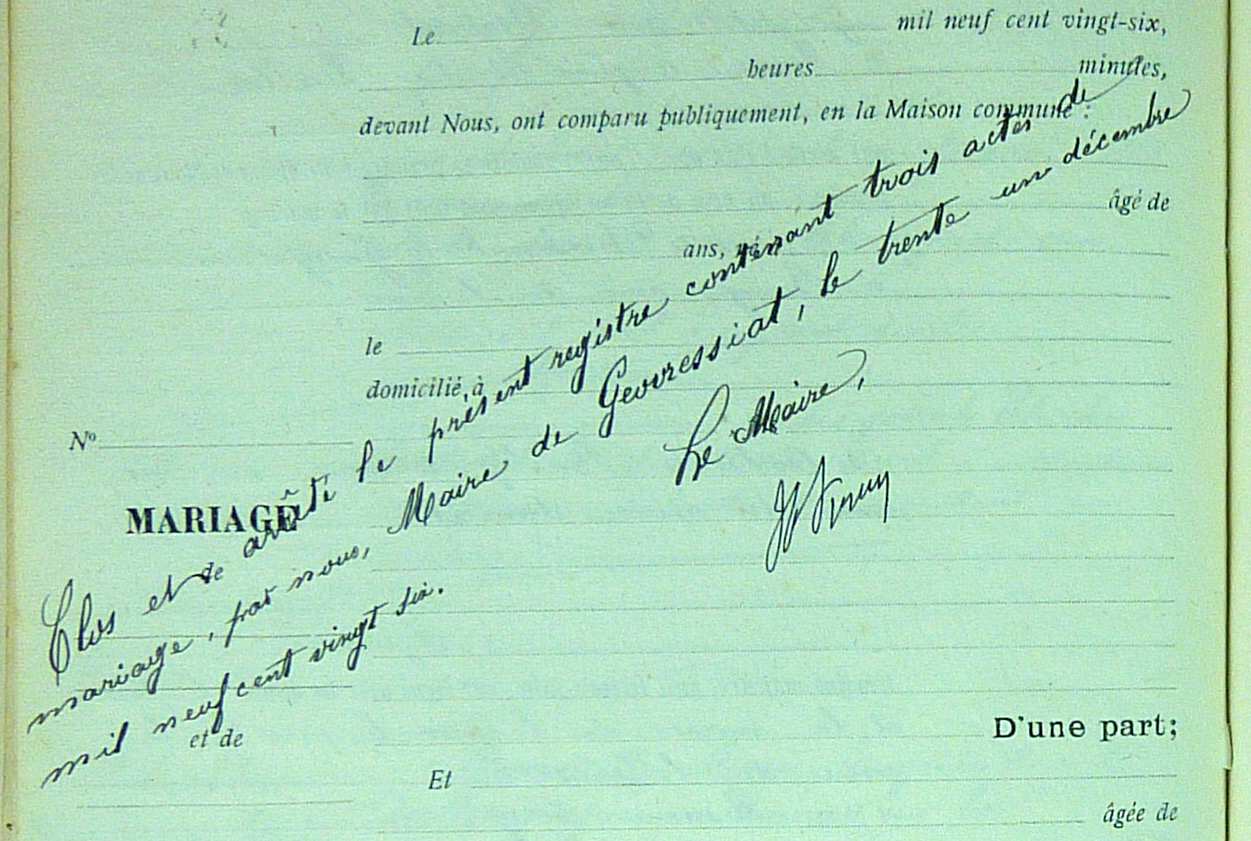 Le mil neuf cent vingt-six,
heures minutes,
devant Nous, ont comparu publiquement, en la Maison commune :
âgé de
ans, né
le
domicilié à
No
MARIAGE
de
et de
D'une part;
Et
âgée de
Clos et arrêté le présent registre contenant trois actes de
mariage, par nous, Maire de Geovressiat, le trente un décembre
mil neuf cent vingt six.
Le Maire,